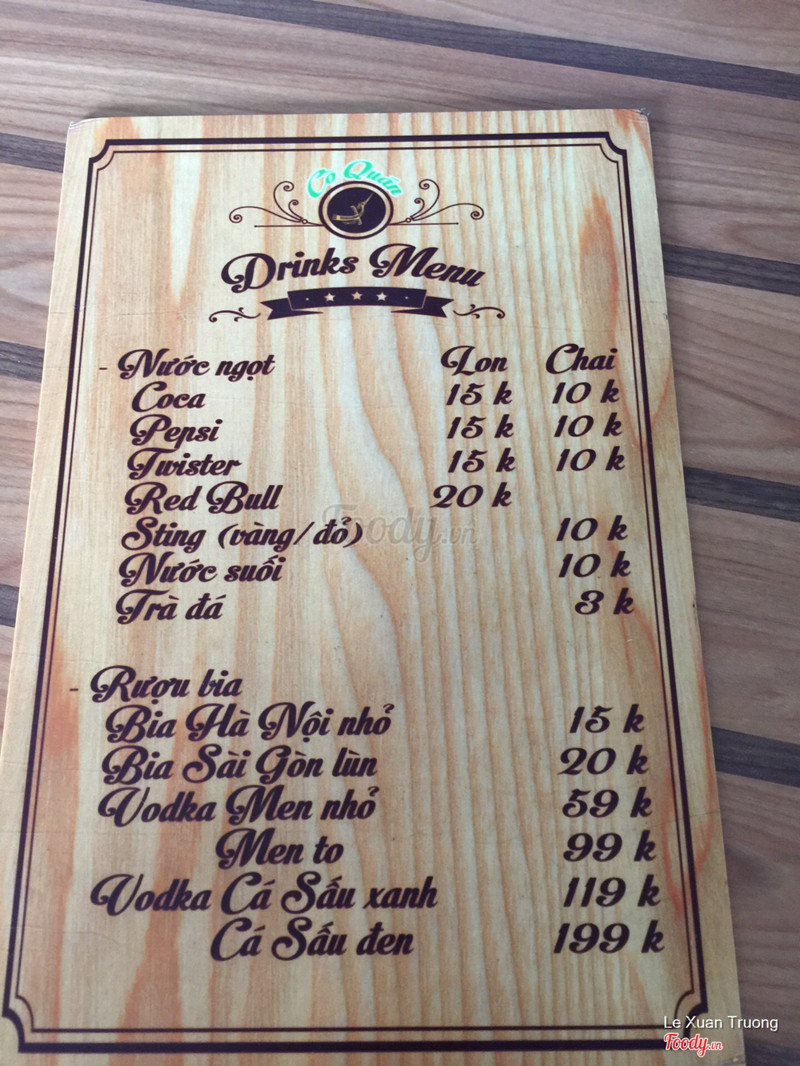 Cò Quán
Drinks Menu
- Nước ngọt Lon Chai
Coca 15 k 10 k
Pepsi 15 k 10 k
Twister 15 k 10 k
Red Bull 20 k
Sting (vàng/đỏ) 10 k
Nước suối 10 k
Trà đá 3 k
Foody.vn
- Rượu bia
Bia Hà Nội nhỏ 15 k
Bia Sài Gòn lùn 20 k
Vodka Men nhỏ 59 k
Men to 99 k
Vodka Cá Sấu xanh 119 k
Cá Sấu đen 199 k
Le Xuan Truong
Foody.vn